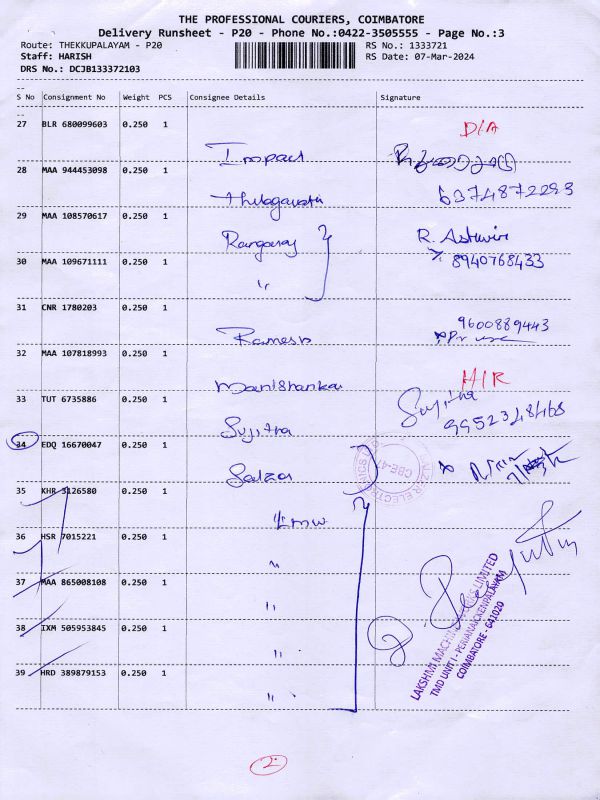 THE PROFESSIONAL COURIERS, COIMBATORE
Delivery Runsheet - P20 - Phone No.:0422-3505555 - Page No.:3
Route: THEKKUPALAYAM - P20 RS No.: 1333721
Staff: HARISH RS Date: 07-Mar-2024
DRS No.: DCJB133372103
S No Consignment No Weight PCS Consignee Details Signature
27 BLR 680099603 0.250 1 D/A
Impact
28 MAA 944453098 0.250 1
6374872293
29 MAA 108570617 0.250 1
Rangaraj R. Ashwin
30 MAA 109671111 0.250 1 8940768433
"
31 CNR 1780203 0.250 1
Ramesh 9600889443
32 MAA 107818993 0.250 1
Manishankar H/R
33 TUT 6735886 0.250 1
Sujitra Sujitra
9952348468
34 EDQ 16670047 0.250 1
Salzar
CBE-47
35 KHR 3126580 0.250 1
LMW
36 HSR 7015221 0.250 1
"
37 MAA 865008108 0.250 1
"
38 IXM 505953845 0.250 1
"
39 HRD 389879153 0.250 1
"
LAKSHMI MACHINE WORKS LIMITED
TMD UNIT I - PERIANAICKENPALAYAM
COIMBATORE - 641020
2